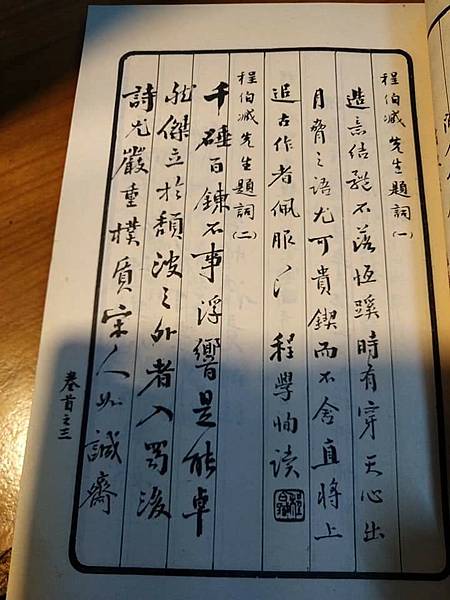 程伯臧先生題詞(一)
造意結體不落恆蹊時有穿天心出
月脅之語尤可貴鍥而不舍直將上
追古作者佩服〻程學恂读
程伯臧先生題詞(二)
千錘百鍊不事浮響是能卓
然傑立於頹波之外者入蜀後
詩尤嚴重樸質宋人如誠齋
卷首之三